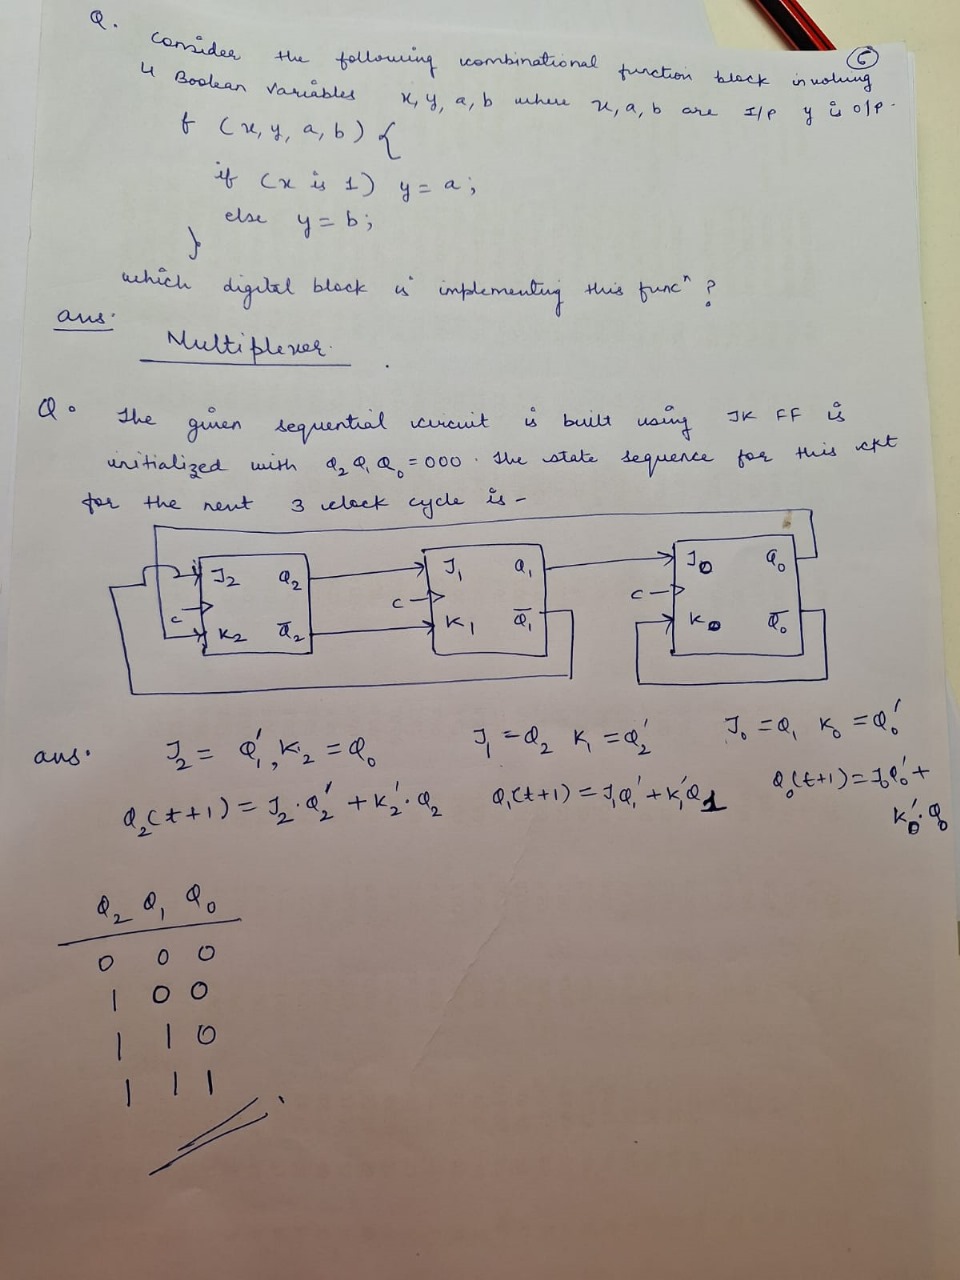 Q.
6
Consider the following combinational function block involving
4 Boolean variables x, y, a, b where x, a, b are I/P y is O/P.
f (x, y, a, b) {
if (x is 1) y = a;
else y = b;
}
which digital block is implementing this funcⁿ ?
ans:
Multiplexer.
Q. The given sequential circuit is built using JK FF is
initialized with Q₂ Q₁ Q₀ = 000. The state sequence for this ckt
for the next 3 clock cycle is -
J₂ Q₂ J₁ Q₁ J₀ Q₀
C C C
K₂ Q̅₂ K₁ Q̅₁ K₀ Q̅₀
ans. J₂ = Q₁', K₂ = Q₀ J₁ = Q₂ K₁ = Q₂' J₀ = Q₁ K₀ = Q₀'
Q₂(t+1) = J₂·Q₂' + K₂'·Q₂ Q₁(t+1) = J₁Q₁' + K₁'Q₁ Q₀(t+1) = J₀Q₀' +
K₀'·Q₀
Q₂ Q₁ Q₀
0 0 0
1 0 0
1 1 0
1 1 1